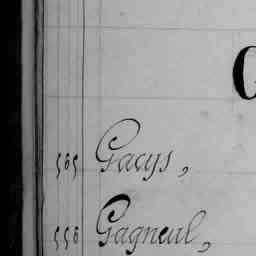 G
565 Gacys,
558 Gagneul,